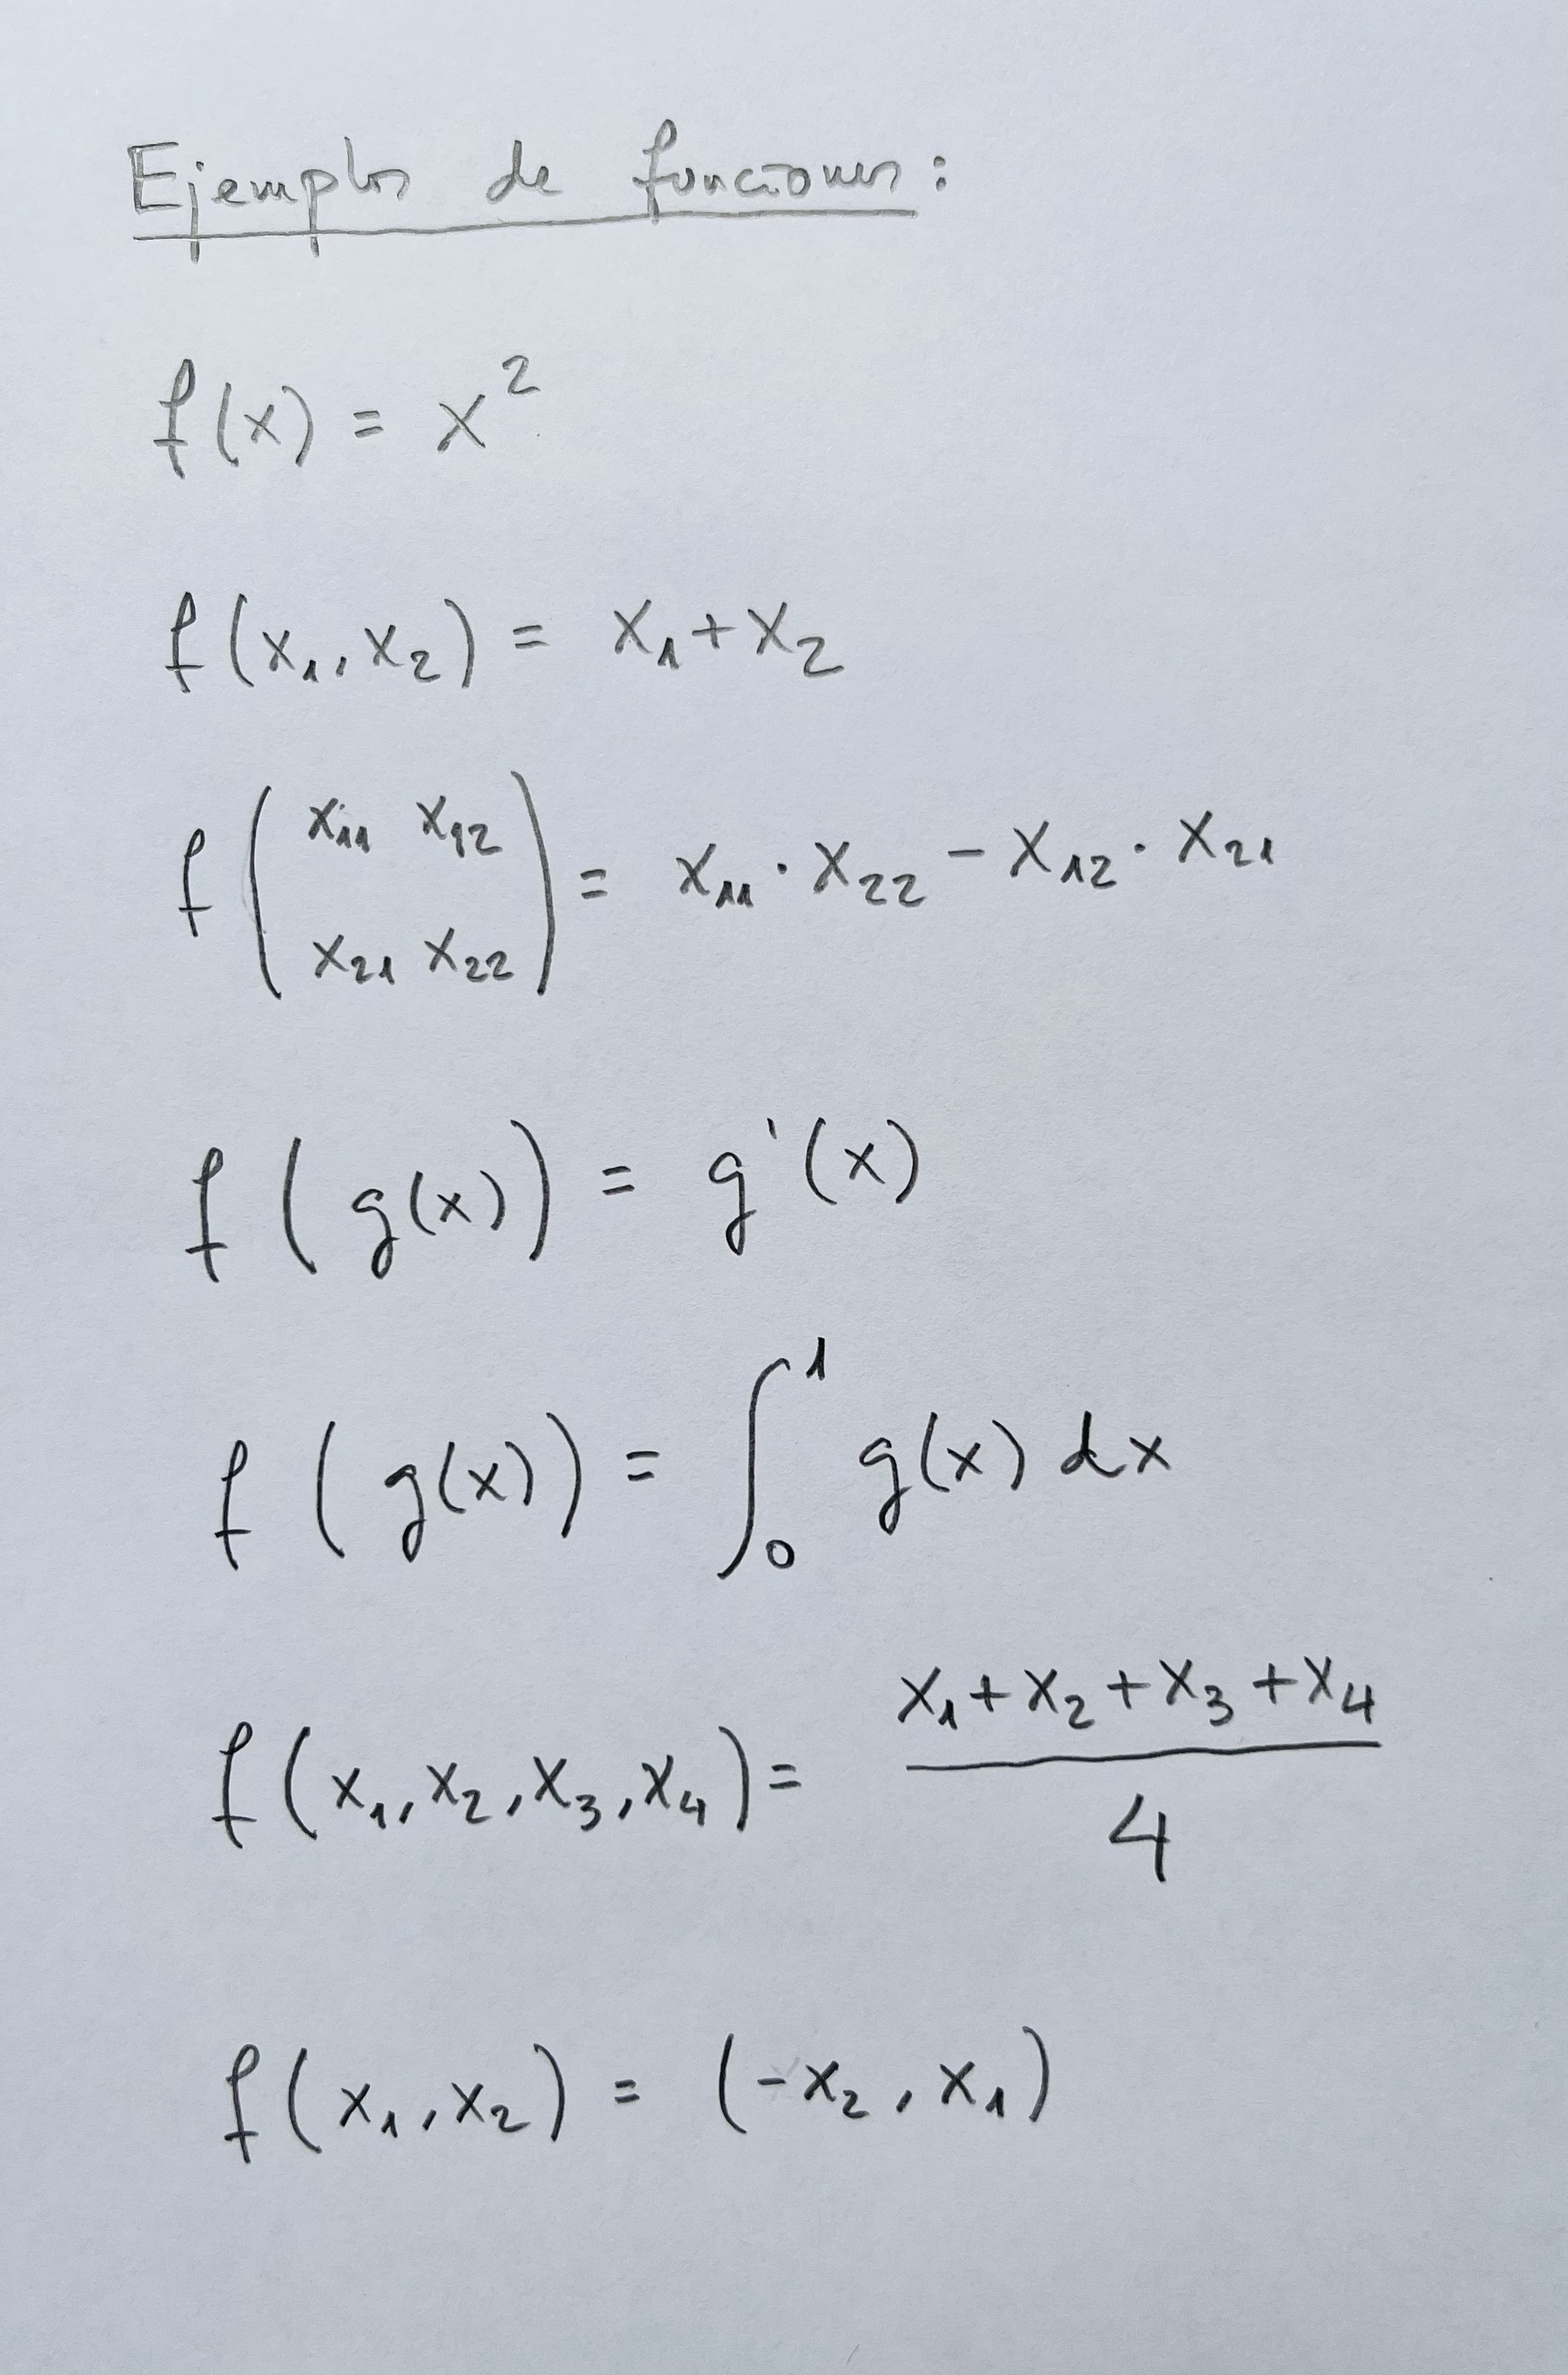 Ejemplos de funciones:
f(x) = x²
f(x₁, x₂) = x₁ + x₂
f(x₁₁ x₁₂
x₂₁ x₂₂) = x₁₁ · x₂₂ − x₁₂ · x₂₁
f(g(x)) = g'(x)
f(g(x)) = ∫₀¹ g(x) dx
f(x₁, x₂, x₃, x₄) = (x₁ + x₂ + x₃ + x₄) / 4
f(x₁, x₂) = (−x₂, x₁)